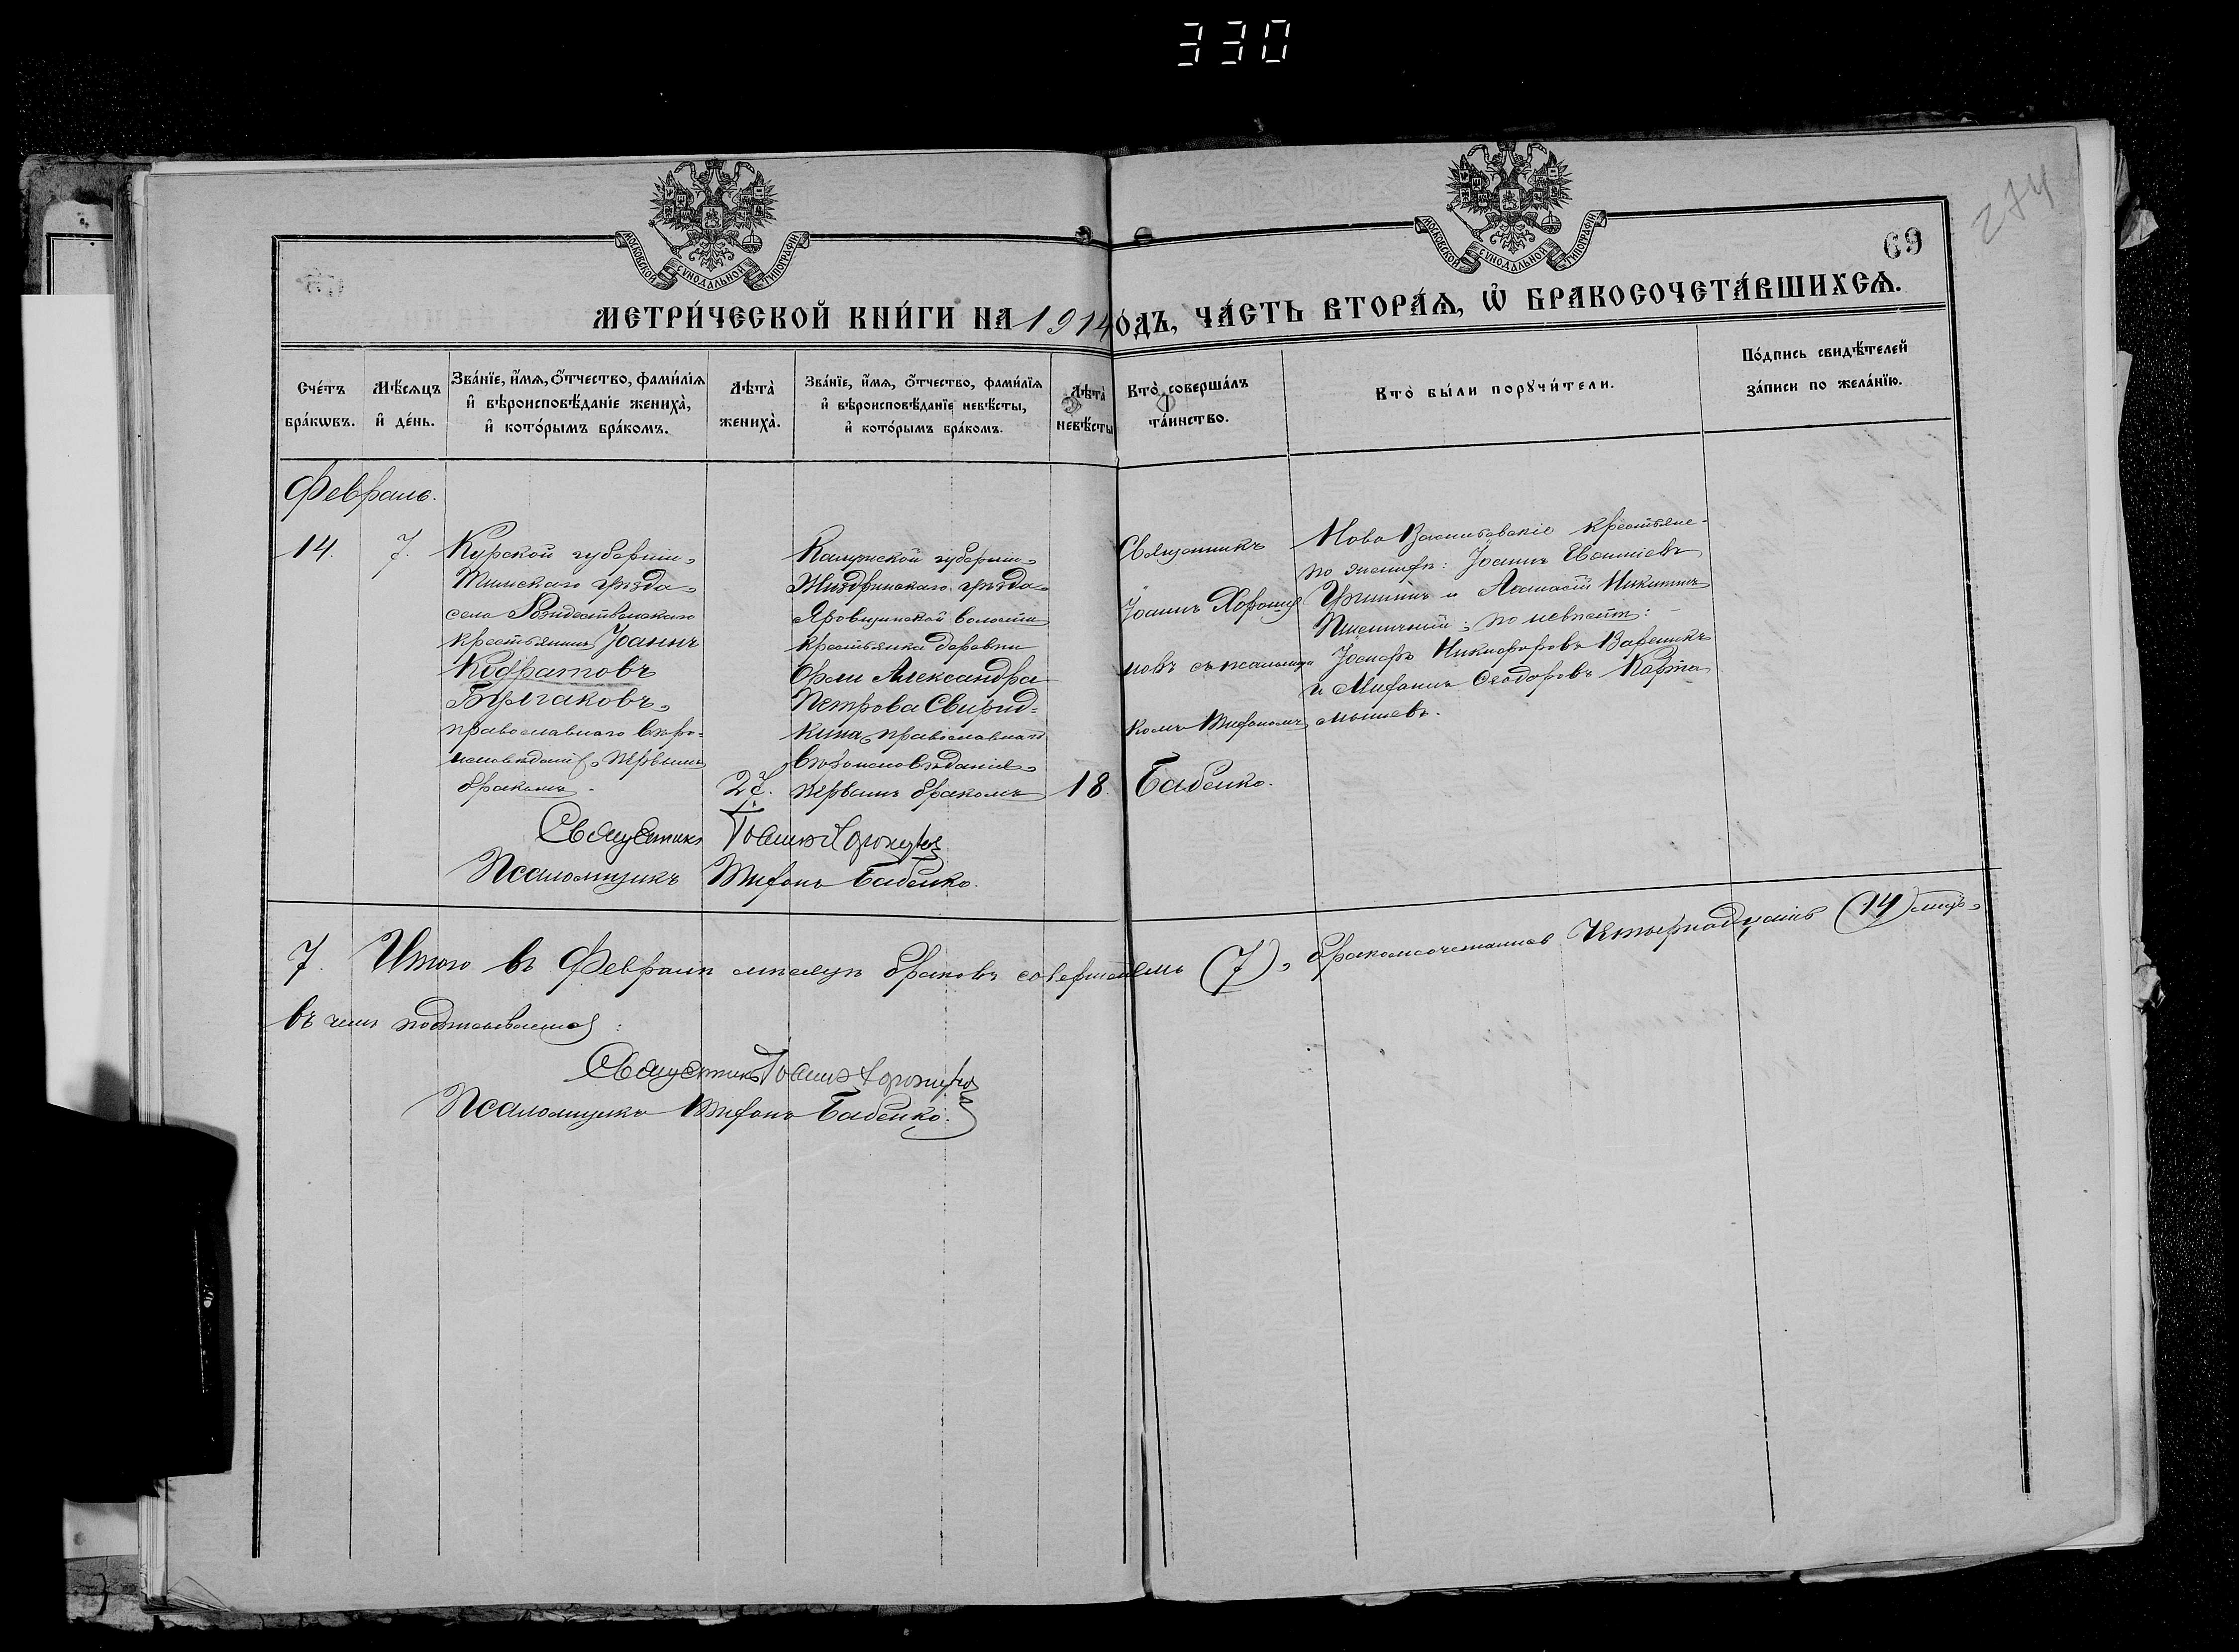 330
274
МОСКОВСКОЙ СѴНОДАЛЬНОЙ ТИПОГРАФІИ
МОСКОВСКОЙ СѴНОДАЛЬНОЙ ТИПОГРАФІИ
69
МЕТРИ́ЧЕСКОЙ КНИ́ГИ НА 1914 ОДЪ, ЧА́СТЬ ВТОРА́Ѧ, Ѡ҆ БРАКОСОЧЕТА́ВШИХСѦ.
Сче́тъ бра́кѡвъ.
Мѣ́сяцъ и҆ де́нь.
Зва́нїе, и҆́мѧ, ѻ҆́тчество, фами́лїѧ
и҆ вѣроисповѣ́данїе жениха̀,
и҆ кото́рымъ бра́комъ.
Лѣта̀ жениха̀.
Зва́нїе, и҆́мѧ, ѻ҆́тчество, фами́лїѧ
и҆ вѣроисповѣ́данїе невѣ́сты,
и҆ кото́рымъ бра́комъ.
Лѣта̀ невѣ́сты
Кто̀ соверша́лъ та́инство.
Кто̀ бы́ли порꙋчи́тели.
По́дпись свидѣ́телей
за́писи по жела́нїю.
Февраль.
14.
7.
Курской губерніи,
Тимскаго уѣзда,
села Рождественскаго
крестьянинъ Іоаннъ
Кодратовъ
Булгаковъ,
православнаго вѣро-
исповѣданія, первымъ
бракомъ.
27.
Калужской губерніи,
Жиздринскаго уѣзда,
Яровщинской волости
крестьянка деревни
Орли Александра
Петрова Свирид-
кина, православнаго
вѣроисповѣданія,
первымъ бракомъ
18.
Священникъ
Іоаннъ
новъ съ псаломщи
комъ Тифономъ
Бабенко.
Ново Васильевскіе крестьяне
по женихѣ: Іоаннъ
и Аѳанасій Никитинъ
Пшеничный; по невѣстѣ:
Іосифъ Никифоровъ
и Ѳеодоровъ Карта
мышевъ.
Священникъ Іоаннъ
Псаломщикъ Тифонъ Бабенко.
7. Итого въ Февралѣ мѣсяцѣ браковъ совершено (7), бракосочетанныхъ четырнадцать (14) лицъ,
въ чемъ подписываемся:
Священникъ Іоаннъ
Псаломщикъ Тифонъ Бабенко.